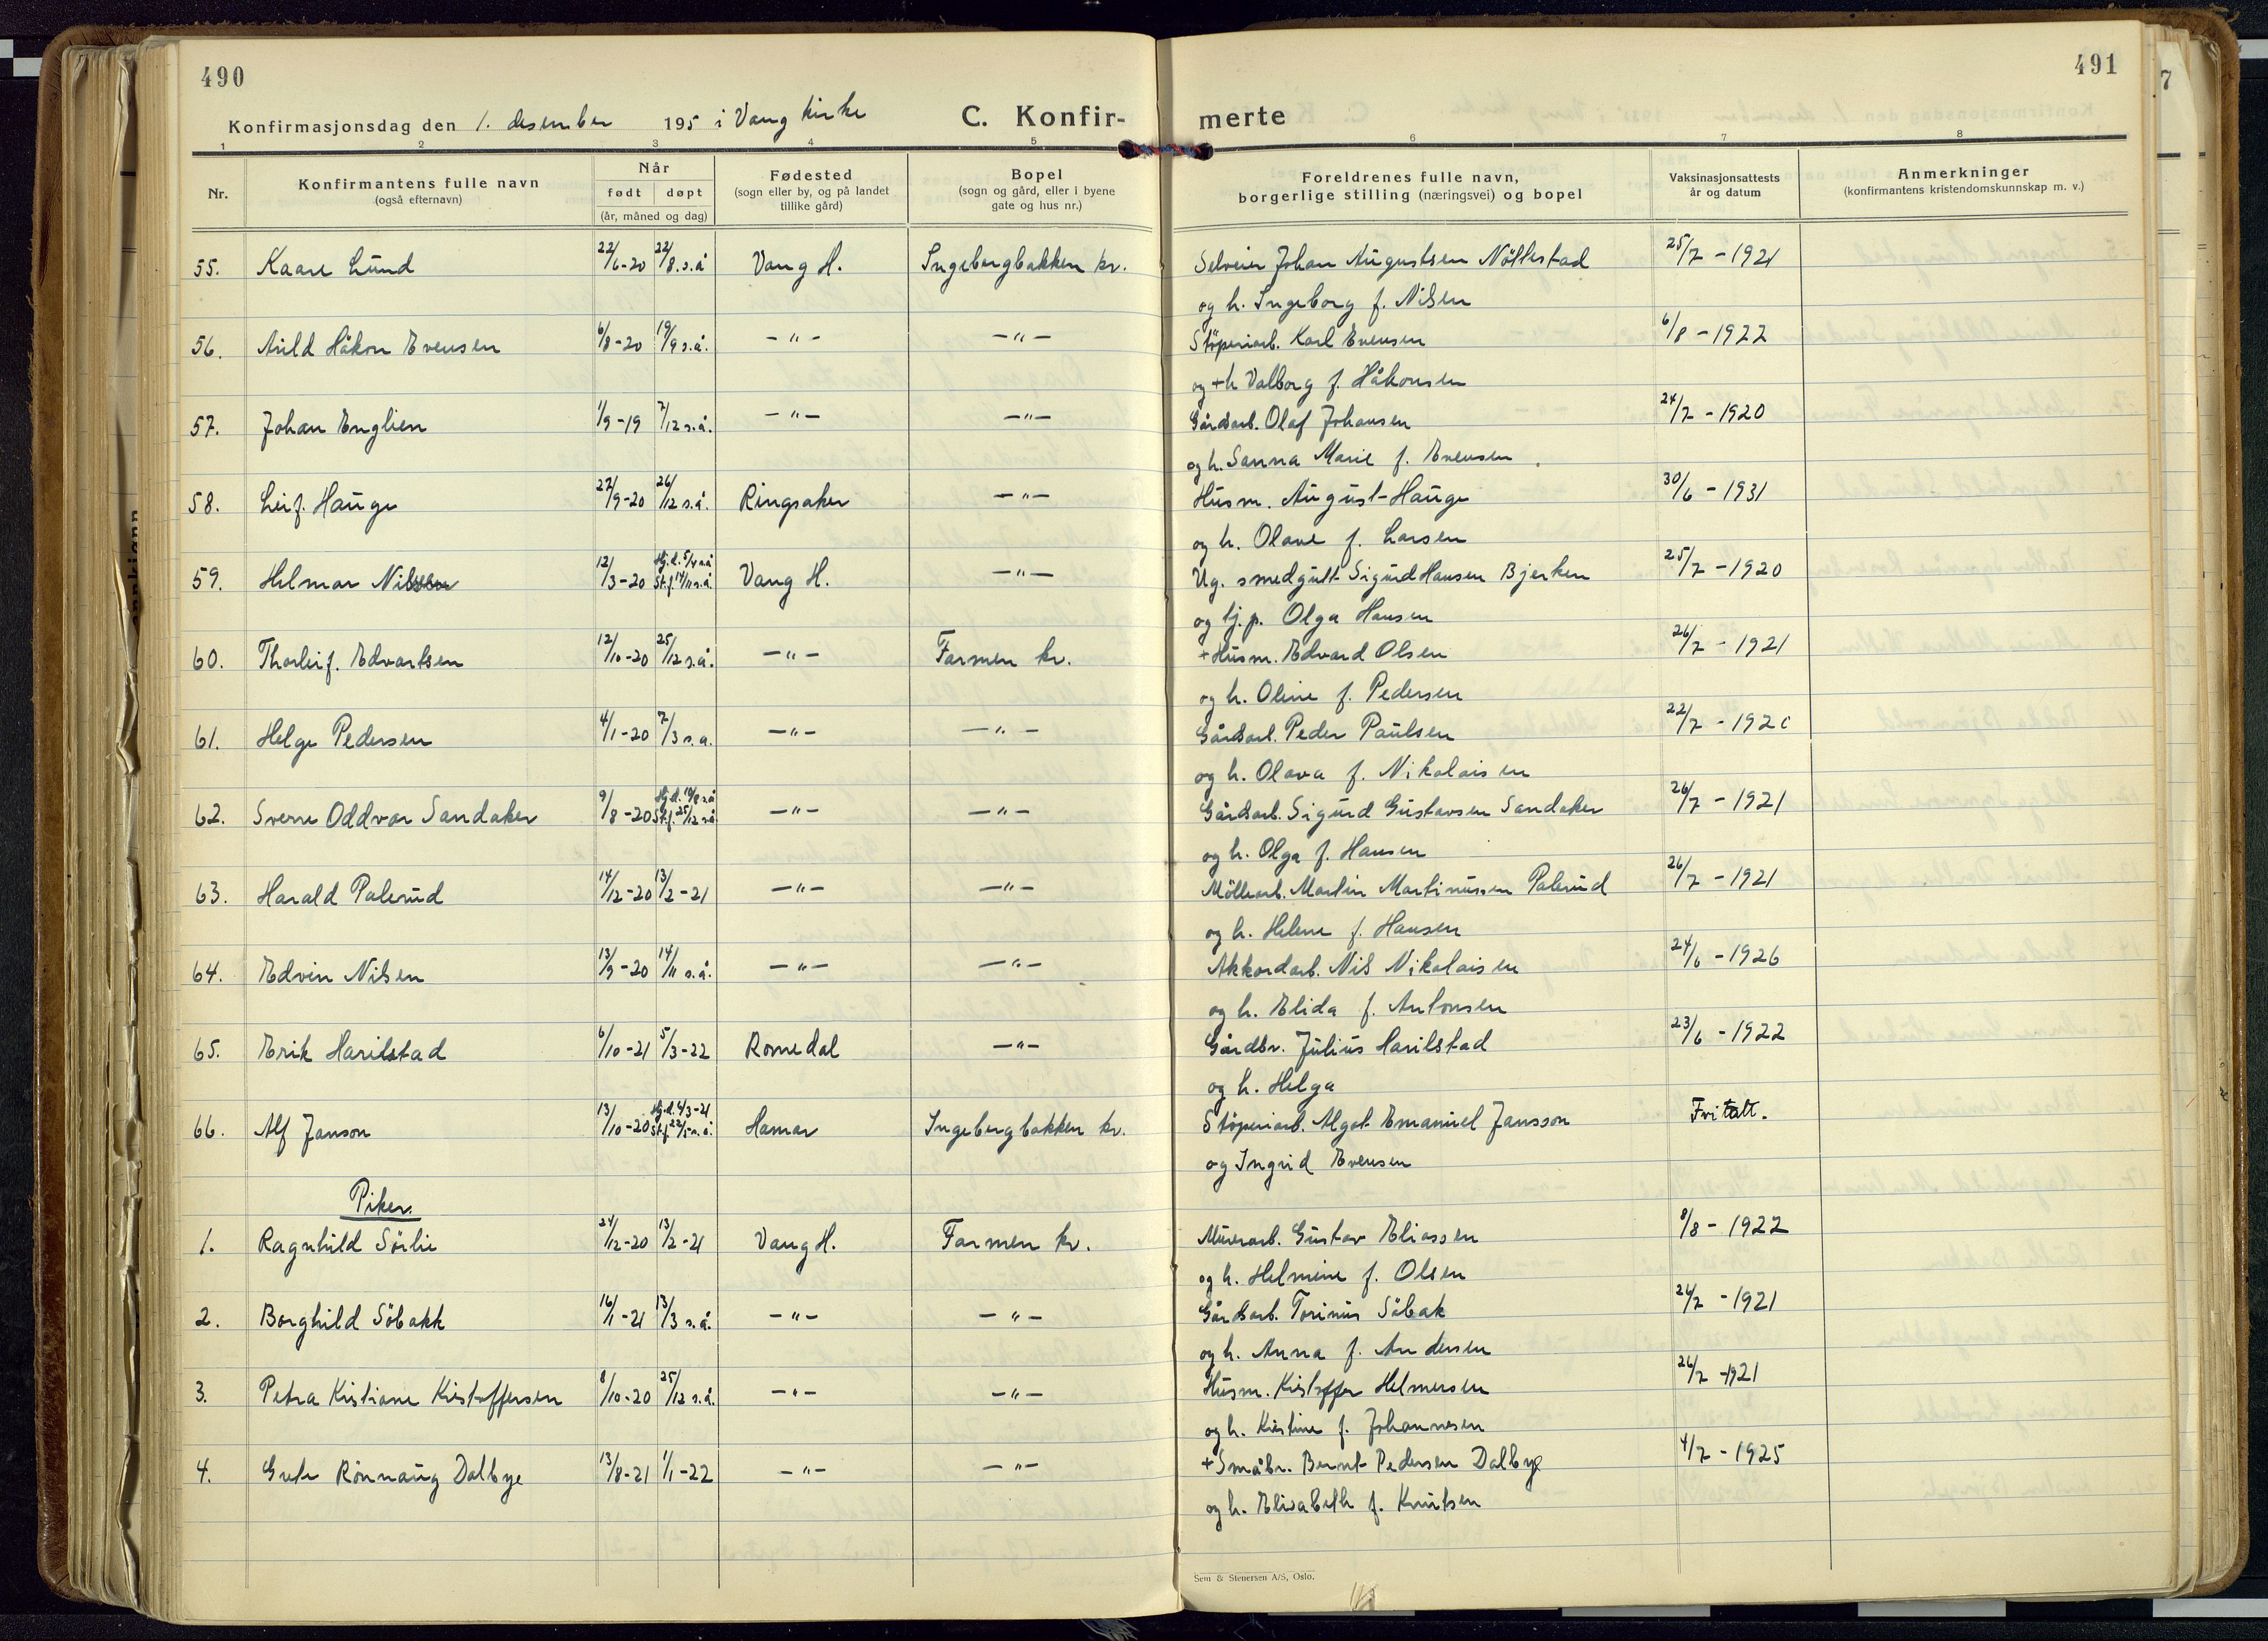 490
Konfirmasjonsdag den 1. desember 195 i Vang kirke
C. Konfir-
1 2 3 4 5
Nr. Konfirmantens fulle navn (også efternavn) Når født døpt (år, måned og dag) Fødested (sogn eller by, og på landet tillike gård) Bopel (sogn og gård, eller i byene gate og hus nr.)
55. Kaare Lund 22/6-20 22/8.s.å Vang H. Ingebergbakken kr.
56. Arild Håkon Evensen 6/8-20 19/9 s.å. -"- -"-
57. Johan Englien 1/9-19 7/12 s.å. -"- -"-
58. Leif Hauge 27/9-20 26/12 s.å. Ringsaker -"-
59. Helmar Nilsen 12/3-20 Hj.d. 5/4 s.å St.f. 14/11 s.å. Vang H. -"-
60. Thorleif Edvartsen 12/10-20 25/12 s.å. -"- Farmen kr.
61. Helge Pedersen 4/1-20 7/3 s.a. -"- -"-
62. Sverre Oddvar Sandaker 9/8-20 Hj.d. 19/8 s.å St.f. 25/12 s.å -"- -"-
63. Harald Palerud 14/12-20 13/2-21 -"- -"-
64. Edvin Nilsen 13/9-20 14/11 s.å. -"- -"-
65. Erik Harilstad 6/10-21 5/3-22 Romedal -"-
66. Alf Janson 13/10-20 Hj.d. 4/3-21 St.f. 22/5 s.å. Hamar Ingebergbakken kr.
Piker.
1. Ragnhild Sörlie 24/12-20 13/2-21 Vang H. Farmen kr.
2. Borghild Söbakk 16/1-21 13/3 s.å. -"- -"-
3. Petra Kristiane Kristoffersen 8/10-20 25/12 s.å. -"- -"-
4. Grete Rönnaug Dalbye 13/8-21 1/1-22 -"- -"-
491
merte
6 7 8
Foreldrenes fulle navn, borgerlige stilling (næringsvei) og bopel Vaksinasjonsattests år og datum Anmerkninger (konfirmantens kristendomskunnskap m. v.)
Selveier Johan Augustsen Nöttestad 25/7-1921
og h. Ingeborg f. Nilsen
Støperiarb. Karl Evensen 6/8-1922
og +h Valborg f. Håkonsen
Gårdsarb. Olaf Johansen 24/7-1920
og h. Sanna Marie f. Evensen.
Husm. August Hauge 30/6-1931
og h. Olave f. Larsen
Ug. smedgutt Sigurd Hansen Bjerken 25/7-1920
og tj.p. Olga Hansen
+Husm. Edvard Olsen 26/7-1921
og h. Oline f. Pedersen
Gårdsarb. Peder Paulsen 22/7-1920
og h. Olava f. Nikolaisen
Gårdsarb. Sigurd Gustavsen Sandaker 26/7-1921
og h. Olga f. Hansen
Möllearb. Martin Martinussen Palerud 26/7-1921
og h. Helene f. Hansen
Akkordarb. Nils Nikolaisen 24/6-1926
og h. Elida f. Antonsen
Gårdbr. Julius Harilstad 23/6-1922
og h. Helga
Støperiarb. Algot Emanuel Jansson Fritatt.
og Ingrid Evensen
Murerarb. Gustav Eliassen 8/8-1922
og h. Helmine f. Olsen
Gårdsarb. Torinus Söbak 26/7-1921
og h. Anna f. Andersen
Husm. Kristoffer Helmersen 26/7-1921
og h. Kristine f. Johannesen
+Småbr. Bernt Pedersen Dalbye 4/7-1925
og h. Elisabeth f. Knutsen
Sem & Stenersen A/S, Oslo.
7